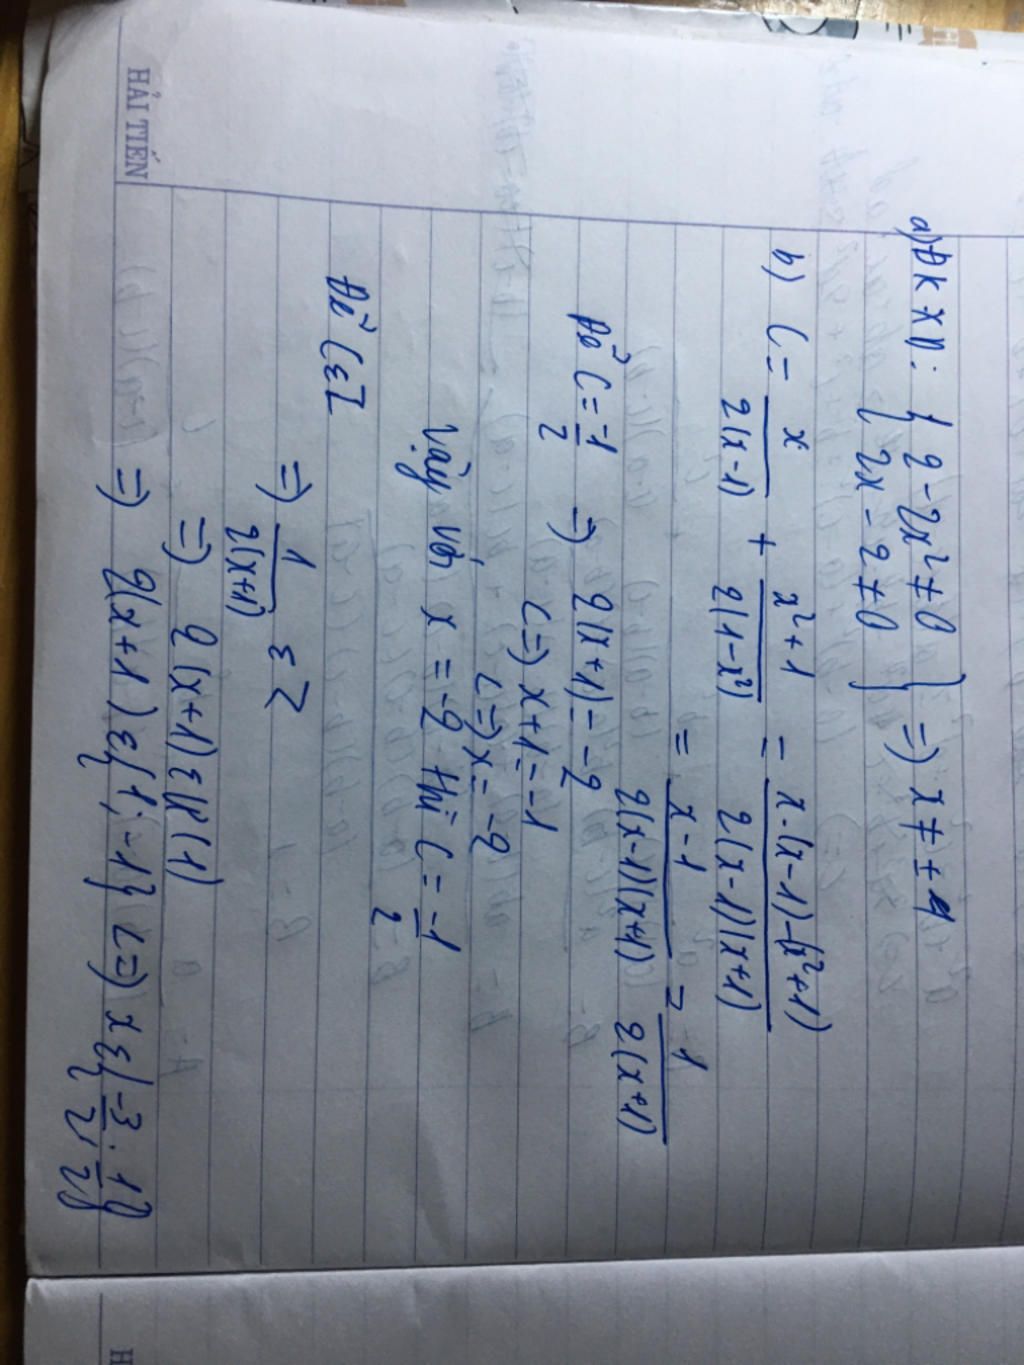 HẢI TIẾN
a) ĐKXĐ: { 2 - 2x² ≠ 0
{ 2x - 2 ≠ 0 } => x ≠ ± 1
b) C = x/2(x-1) + x²+1/2(1-x²) = x.(x-1)-(x²+1)/2(x-1)(x+1)
= x-1/2(x-1)(x+1) = 1/2(x+1)
Để C = -1/2 => 2(x+1) = -2
<=> x+1 = -1
<=> x = -2
Vậy với x = -2 thì C = -1/2
Để C ε Z
=> 1/2(x+1) ε Z
=> 2(x+1) ε Ư(1)
=> 2(x+1) ε {1; -1} <=> x ε { -3/2; 1/2 }